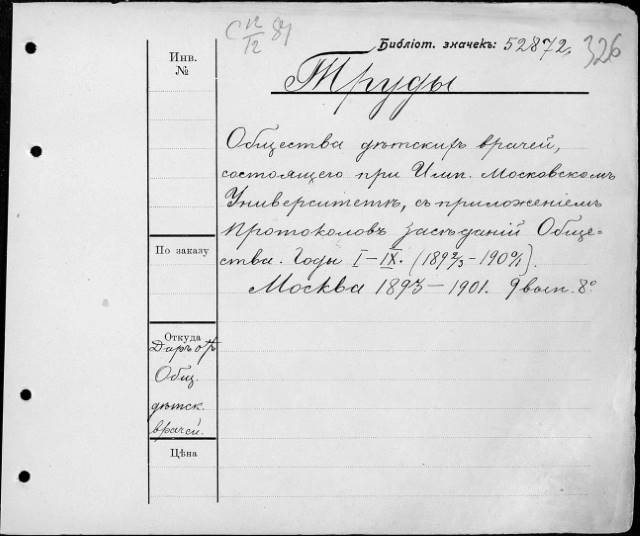 С 12/12 89
Библіот. значекъ: 52872,
326
Инв.
№
Труды
Общества дѣтскихъ врачей,
состоящего при Имп. Московскомъ
Университетѣ, съ приложеніемъ
Протоколовъ засѣданій Обще-
ства. Годы I–IX. (1892/3–1900/1).
Москва 1893–1901. 9 вып. 8°
По заказу
Откуда
Даръ отъ
Общ.
дѣтск.
врачей.
Цѣна